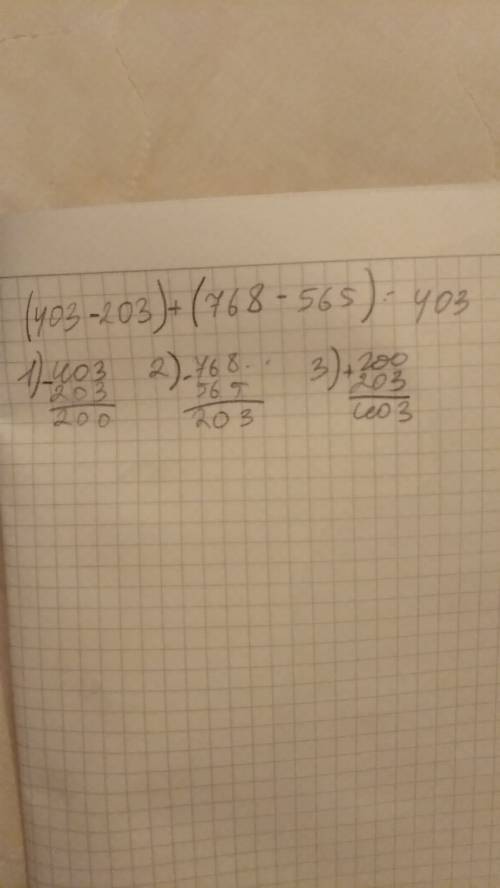 (403-203)+(768-565)=403
1) -403 2) -768 3) +200
203 565 203
200 203 403